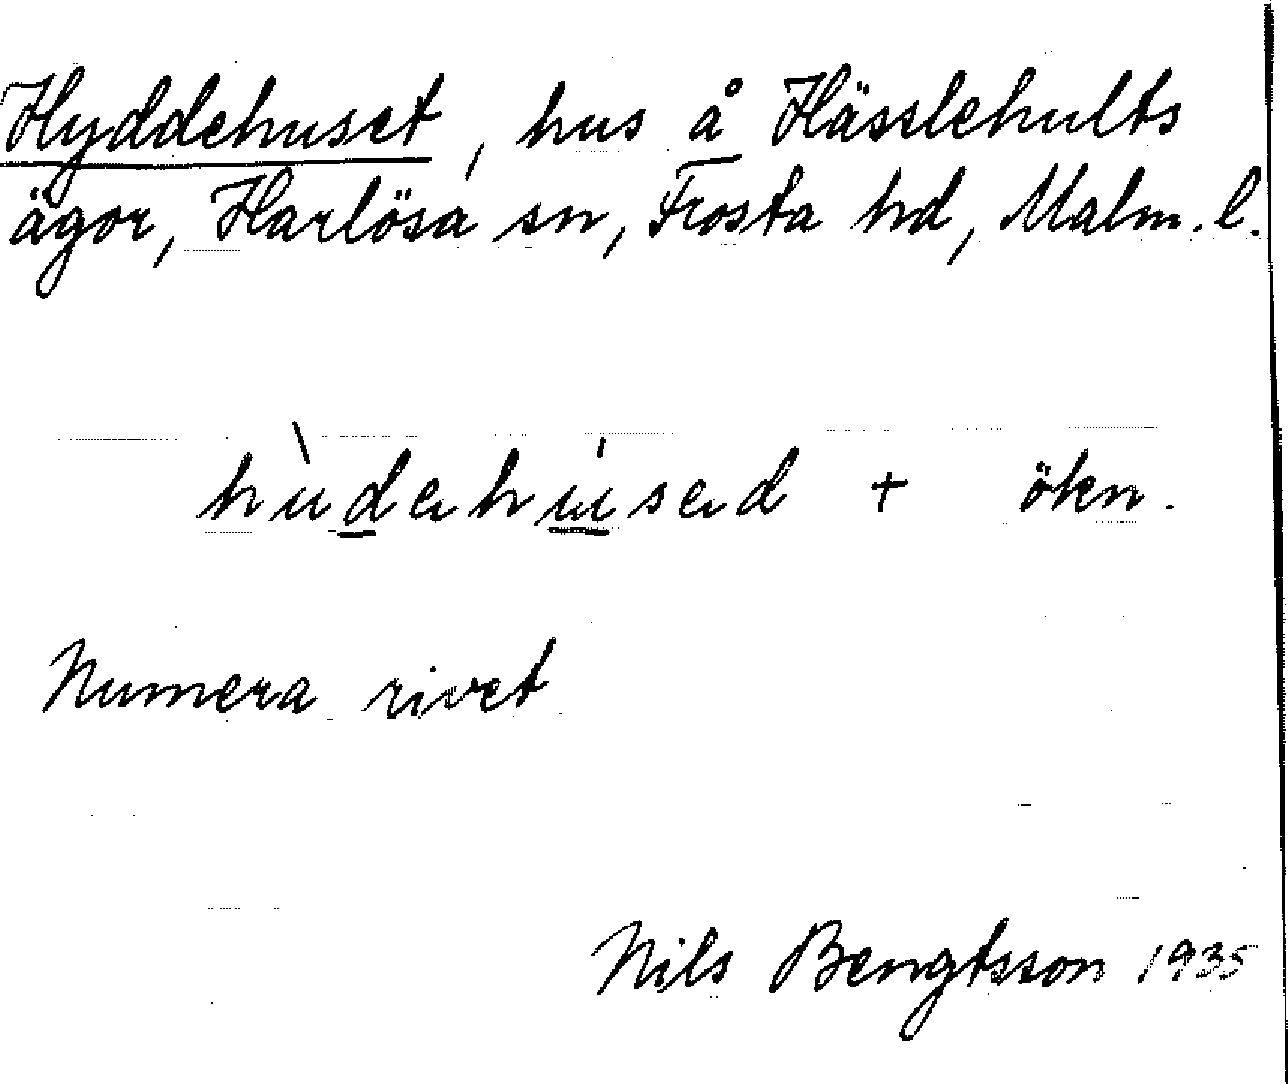 Hyddehuset, hus å Hässlehults
ägor, Harlösa sn, Frosta hd, Malm. l.
hùdehúsed + ökn.
Numera rivet
Nils Bengtsson 1935